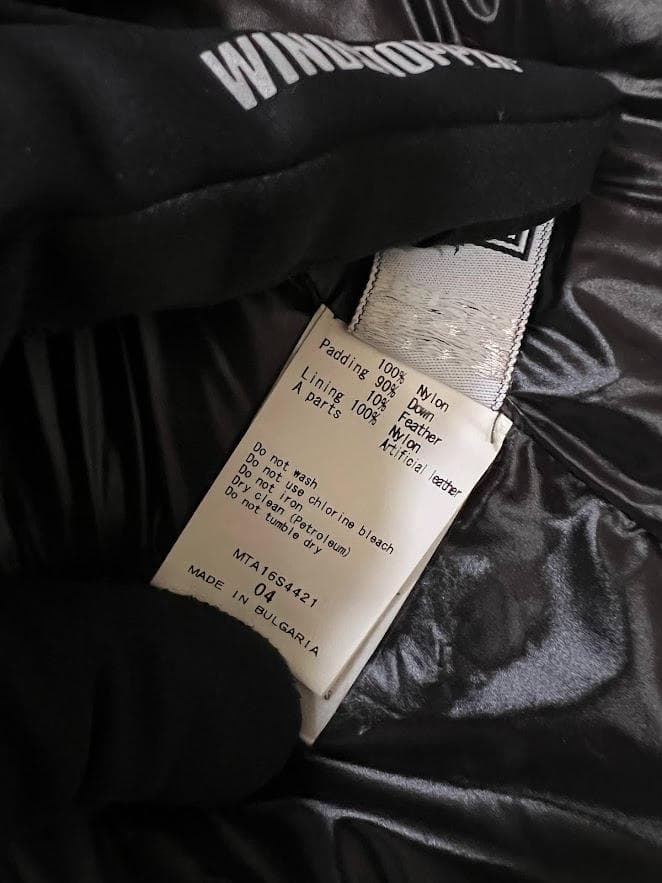 WINDSTOPPER
100% Nylon
Padding 90% Down
10% Feather
Lining 100% Nylon
A parts Artificial leather
Do not wash
Do not use chlorine bleach
Do not iron
Dry clean (Petroleum)
Do not tumble dry
MTA16S4421
04
MADE IN BULGARIA